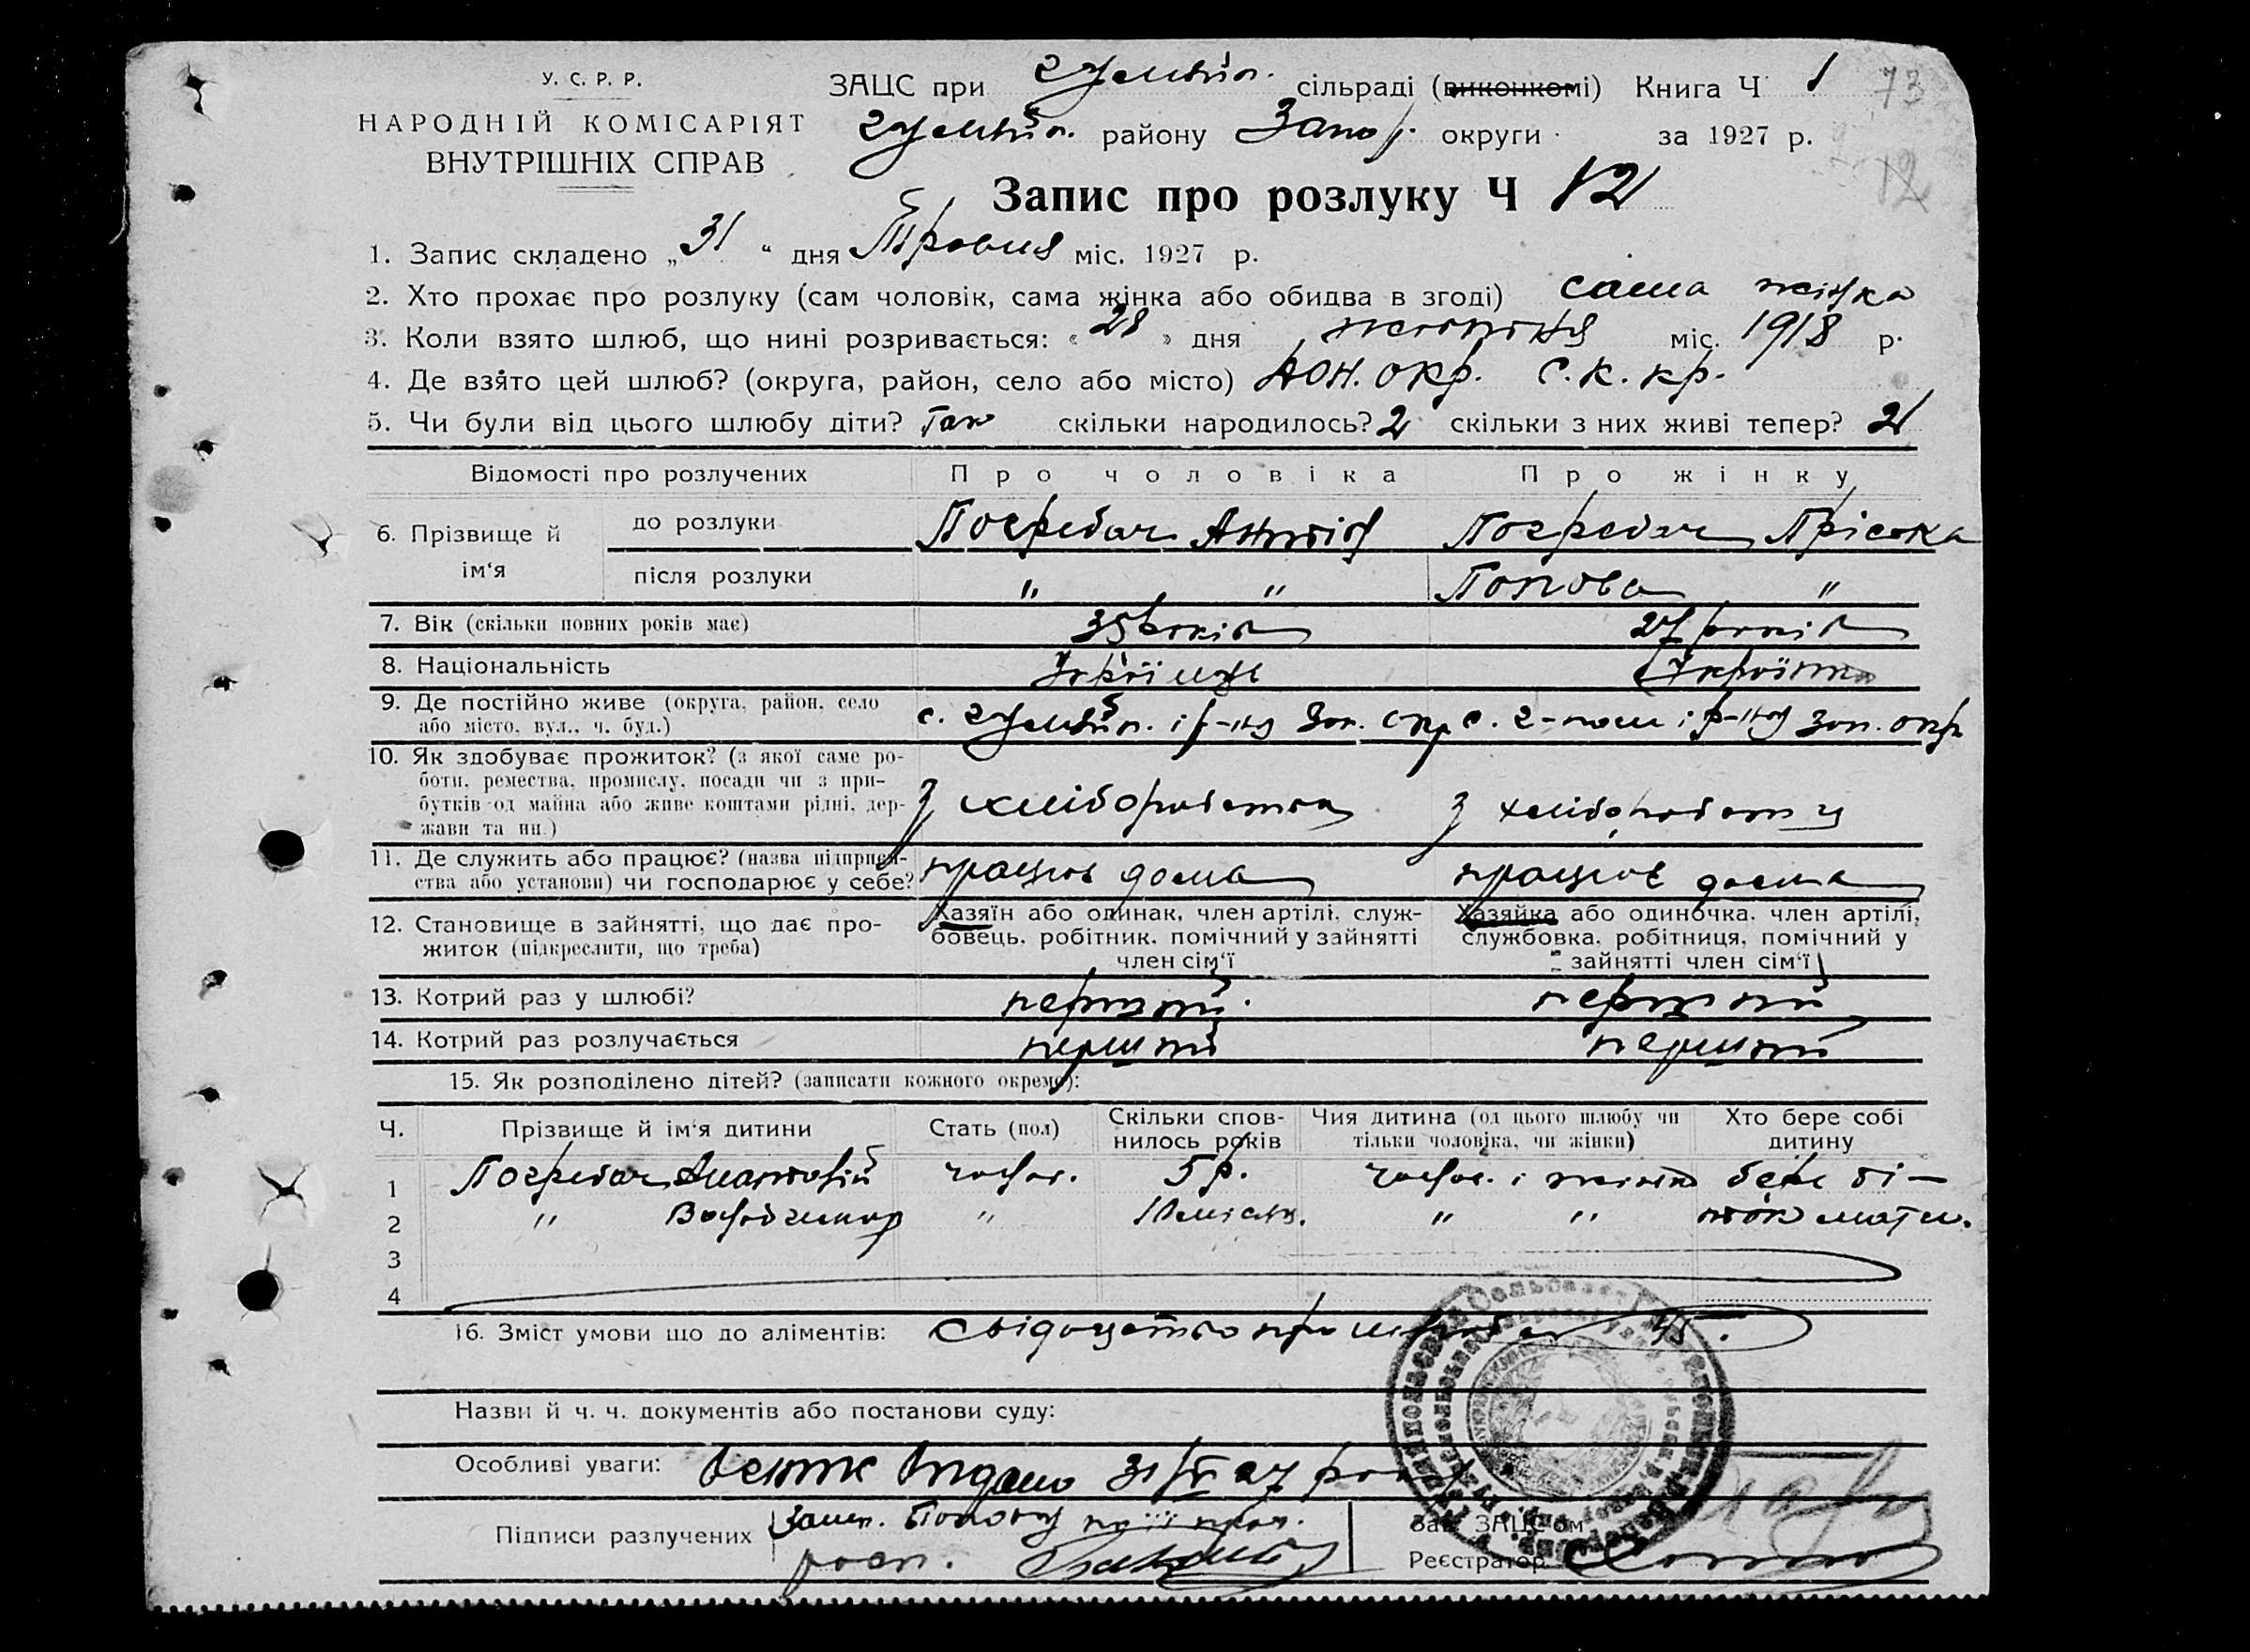 У. С. Р. Р.
НАРОДНІЙ КОМІСАРІЯТ
ВНУТРІШНІХ СПРАВ
ЗАЦС при Гуляйпіл. сільраді (виконкомі) Книга Ч 1 73
Гуляйпіл. району Запор. округи за 1927 р.
12
Запис про розлуку Ч 12
1. Запис складено „31“ дня Травня міс. 1927 р.
2. Хто прохає про розлуку (сам чоловік, сама жінка або обидва в згоді) сама жінка
3. Коли взято шлюб, що нині розривається: «28» дня жовтня міс. 1918 р.
4. Де взято цей шлюб? (округа, район, село або місто) Дон. окр. С. К. кр.
5. Чи були від цього шлюбу діти? Так скільки народилось? 2 скільки з них живі тепер? 2
Відомості про розлучених Про чоловіка Про жінку
6. Прізвище й ім‘я до розлуки Погребач Антін Погребач Пріська
після розлуки " " Попова "
7. Вік (скільки повних років має) 35 років 27 років
8. Національність Українець Українка
9. Де постійно живе (округа, район, село або місто, вул., ч. буд.) с. Гуляйпіл. і р-ну Зап. окр с. Г-поле і р-ну Зап. окр
10. Як здобуває прожиток? (з якої саме роботи, ремества, промислу, посади чи з прибутків од майна або живе коштами рідні, держави та ин.) З хліборобства З хліборобства
11. Де служить або працює? (назва підприємства або установи) чи господарює у себе? працює дома працює дома
12. Становище в зайнятті, що дає прожиток (підкреслити, що треба)
Хазяїн або одинак, член артілі, службовець, робітник, помічний у зайнятті член сім‘ї
Хазяйка або одиночка, член артілі, службовка, робітниця, помічний у зайнятті член сім‘ї
13. Котрий раз у шлюбі? перший перший
14. Котрий раз розлучається перший перший
15. Як розподілено дітей? (записати кожного окремо):
Ч. Прізвище й ім‘я дитини Стать (пол) Скільки сповнилось років Чия дитина (од цього шлюбу чи тільки чоловіка, чи жінки) Хто бере собі дитину
1 Погребач Анатолій чолов. 5 р. чолов. і жінки бере ді-
2 " Володимир " 10 місяц. " " ток мати.
3
4
16. Зміст умови що до аліментів:
Назви й ч. ч. документів або постанови суду:
Особливі уваги: видано 31/V 27 року
Підписи разлучених
розп.
Зав. ЗАЦС‘ом
Реєстратор